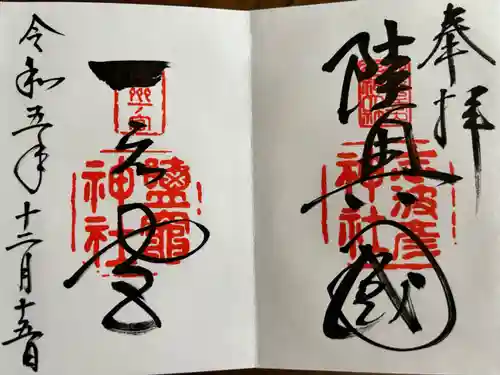 奉拝
陸奥國
志波彦
神社
一之宮
鹽竈
神社
令和五年十二月十五日